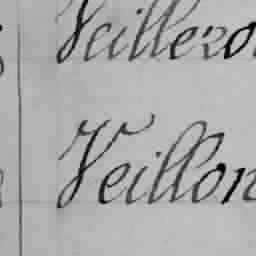 Veillero
Veillon